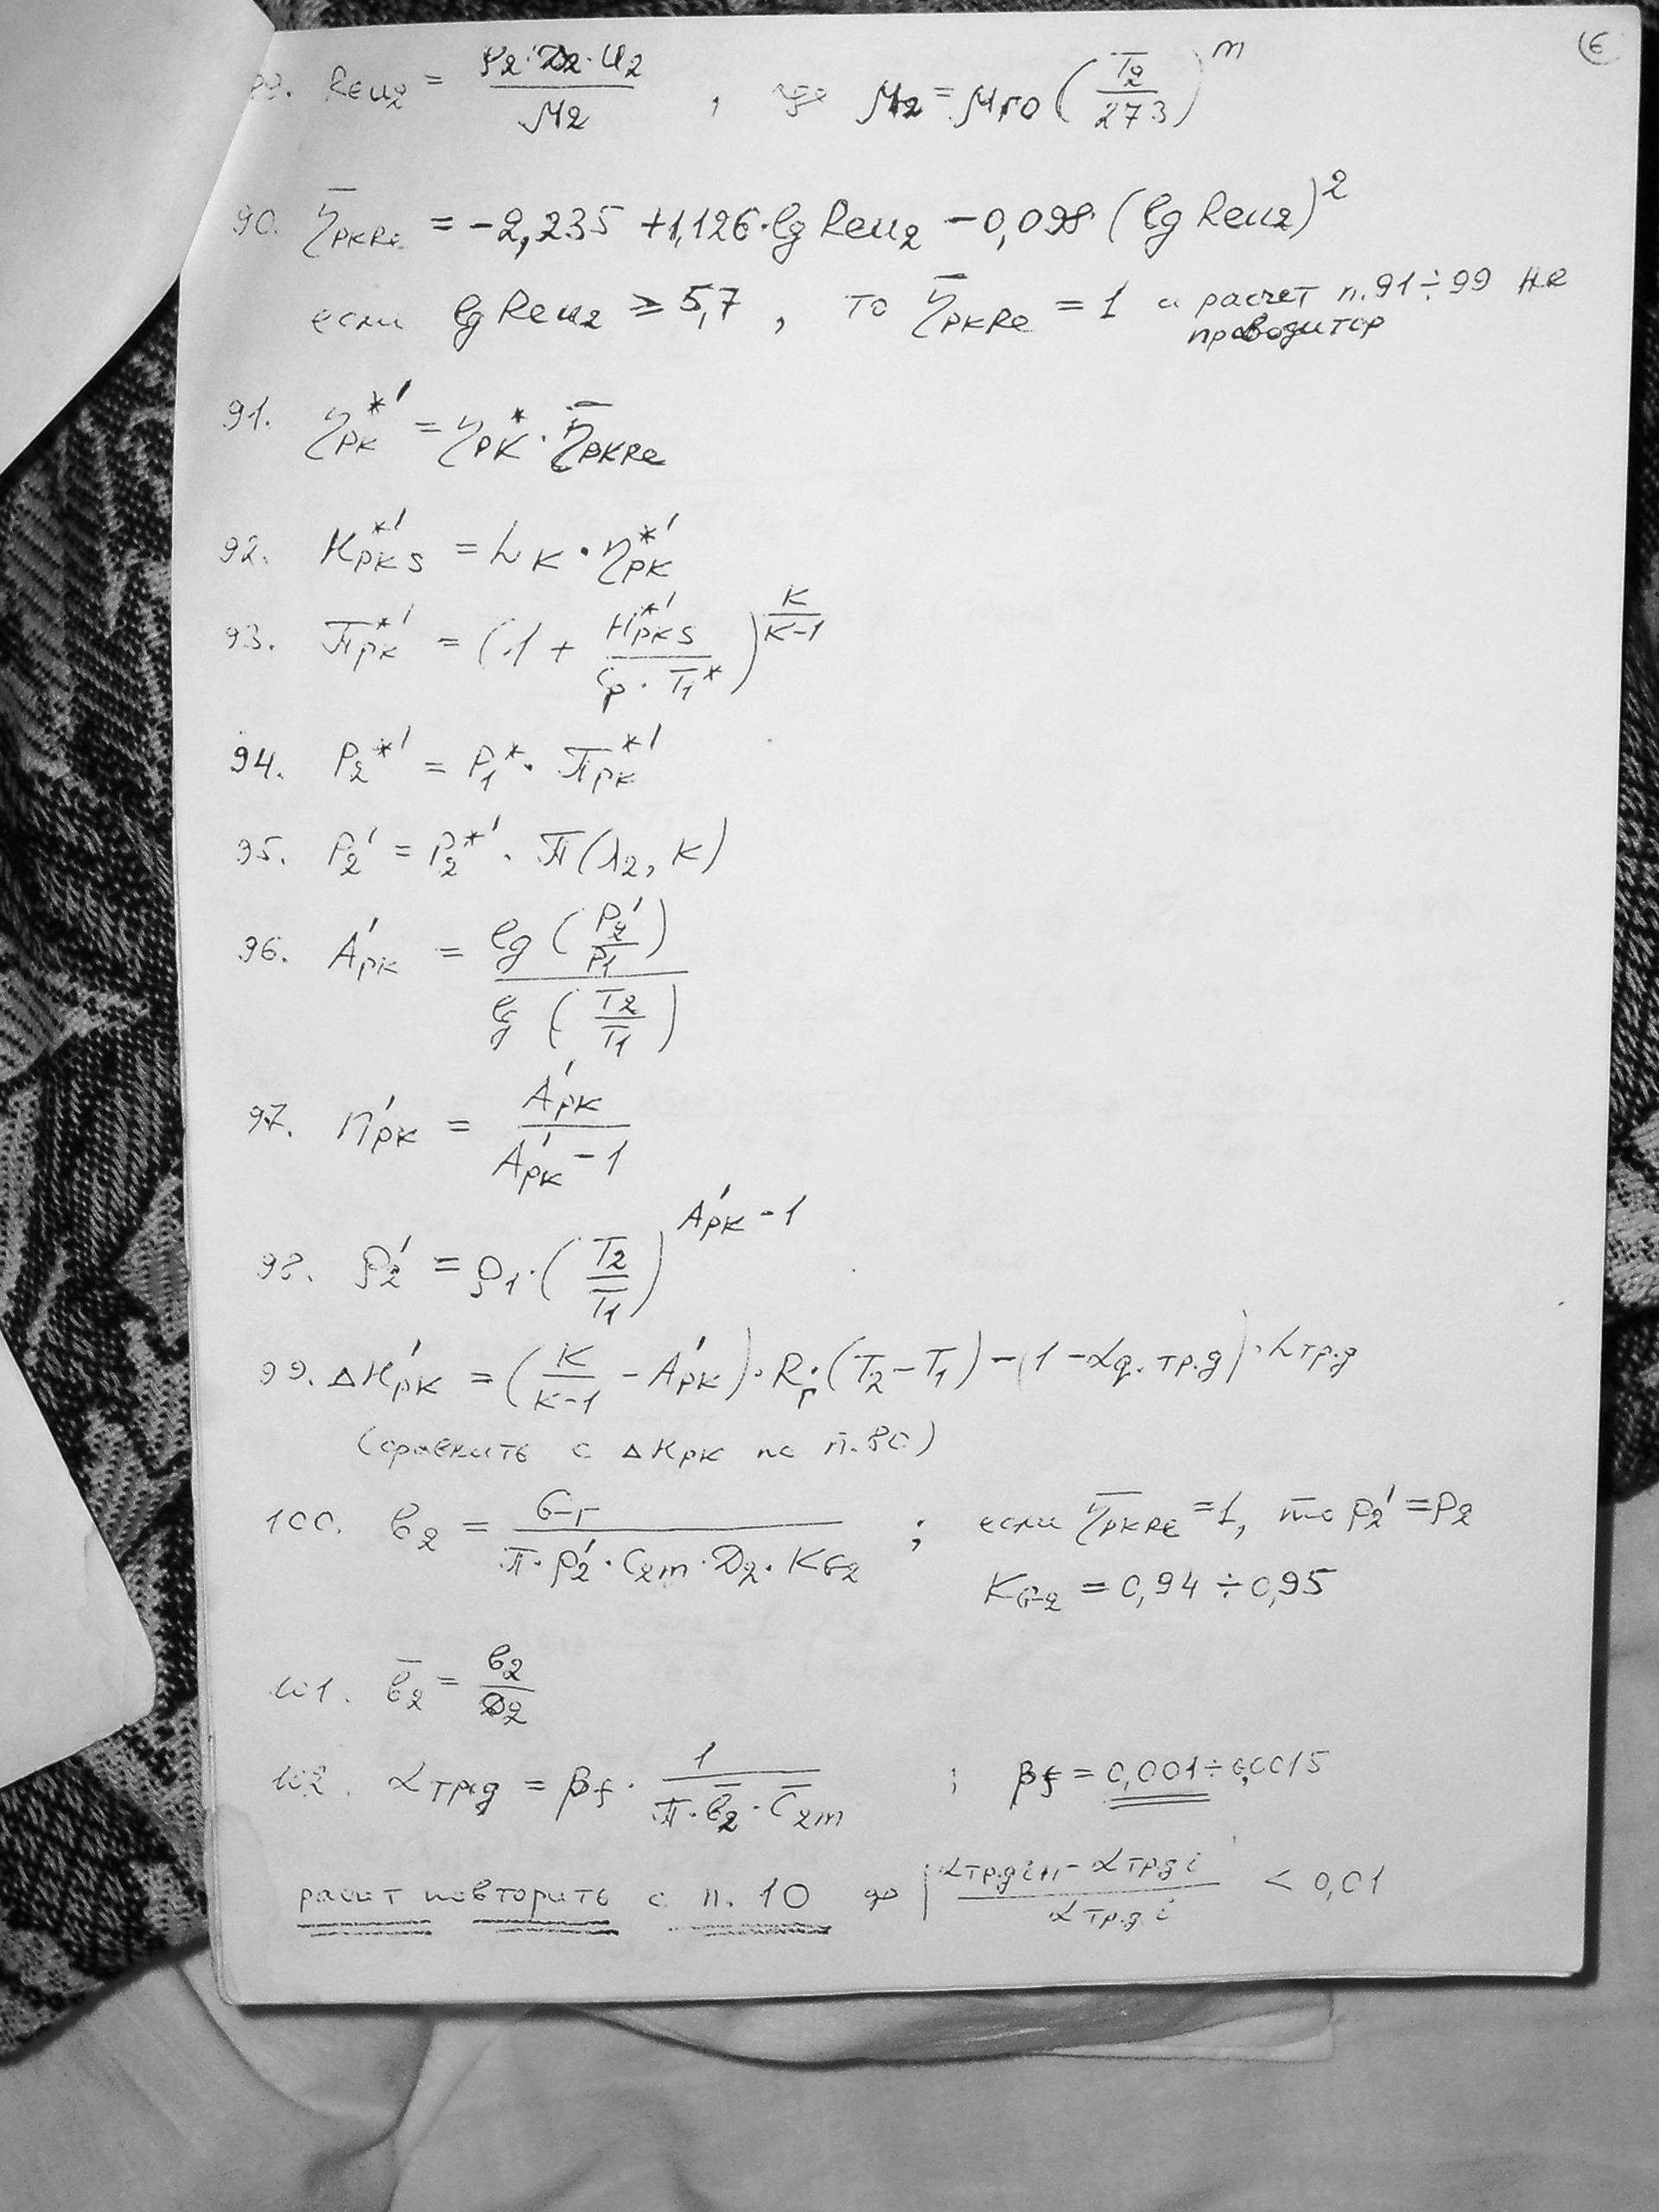 6
89. Reu₂ = (ρ₂·D₂·u₂)/μ₂ , где μ₂ = μг0 (T₂/273)^m
90. η̄ркRe = -2,235 + 1,126·lg Reu₂ - 0,098·(lg Reu₂)²
если lg Reu₂ ≥ 5,7, то η̄ркRe = 1 и расчет п.91÷99 не
проводитср
91. ηрк*' = ηрк* · η̄ркRe
92. Hркs*' = Lк · ηрк*'
93. πрк*' = (1 + Hркs*'/(Cp · T₁*))^(K/(K-1))
94. P₂*' = P₁* · πрк*'
95. P₂' = P₂*' · π(λ₂, K)
96. A'рк = lg (P₂'/P₁) / lg (T₂/T₁)
97. n'рк = A'рк/(A'рк - 1)
98. ρ₂' = ρ₁·(T₂/T₁)^(A'рк - 1)
99. ΔH'рк = (K/(K-1) - A'рк)·Rг·(T₂ - T₁) - (1 - αq.тр.д)·Lтр.д
(сравнить с ΔHрк по п.80)
100. b₂ = Gг/(π·ρ₂'·C₂m·D₂·KG₂) ; если η̄ркRe = 1, то ρ₂' = ρ₂
KG₂ = 0,94 ÷ 0,95
101. b̄₂ = b₂/D₂
102. αтрд = βf · 1/(π·b̄₂·C̄₂m) ; βf = 0,001÷0,0015
расчт повторить с п. 10 до |(αтр.д i+1 - αтр.д i)/αтр.д i < 0,01